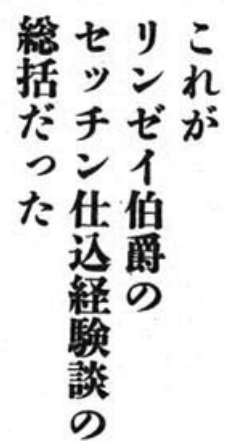 これが
リンゼイ伯爵の
セッチン仕込経験談の
総括だった